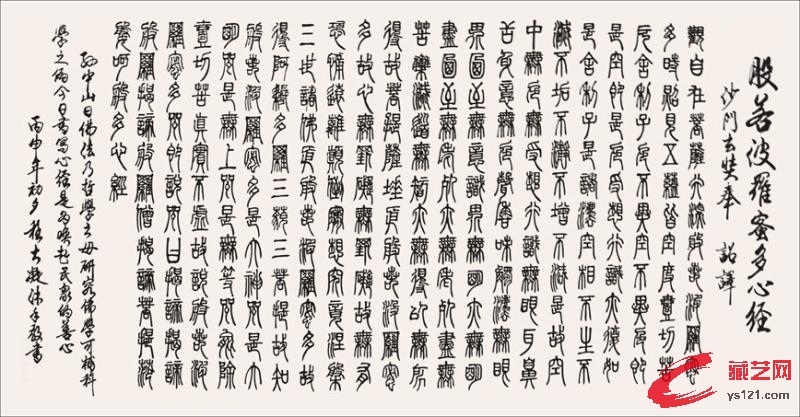 般若波羅蜜多心经
沙門玄奘奉 詔譯
觀自在菩薩行深般若波羅蜜
多時照見五蘊皆空度一切苦
厄舍利子色不異空空不異色色即
是空空即是色受想行識亦復如
是舍利子是諸法空相不生不
滅不垢不淨不增不減是故空
中無色無受想行識無眼耳鼻
舌身意無色聲香味觸法無眼
界乃至無意識界無無明亦無無明
盡乃至無老死亦無老死盡無
苦集滅道無智亦無得以無所
得故菩提薩埵依般若波羅蜜
多故心無罣礙無罣礙故無有
恐怖遠離顛倒夢想究竟涅槃
三世諸佛依般若波羅蜜多故
得阿耨多羅三藐三菩提故知
般若波羅蜜多是大神咒是大
明咒是無上咒是無等等咒能除
一切苦真實不虛故說般若波
羅蜜多咒即說咒曰揭諦揭諦
般羅揭諦般羅僧揭諦菩提薩
婆呵般若心經
孙中山曰佛法乃哲学之母研究佛学可補科
學之偏今日書寫心經是為喚起民衆的善心
丙申年初夕 沐手敬書
藏艺网
ys121.com